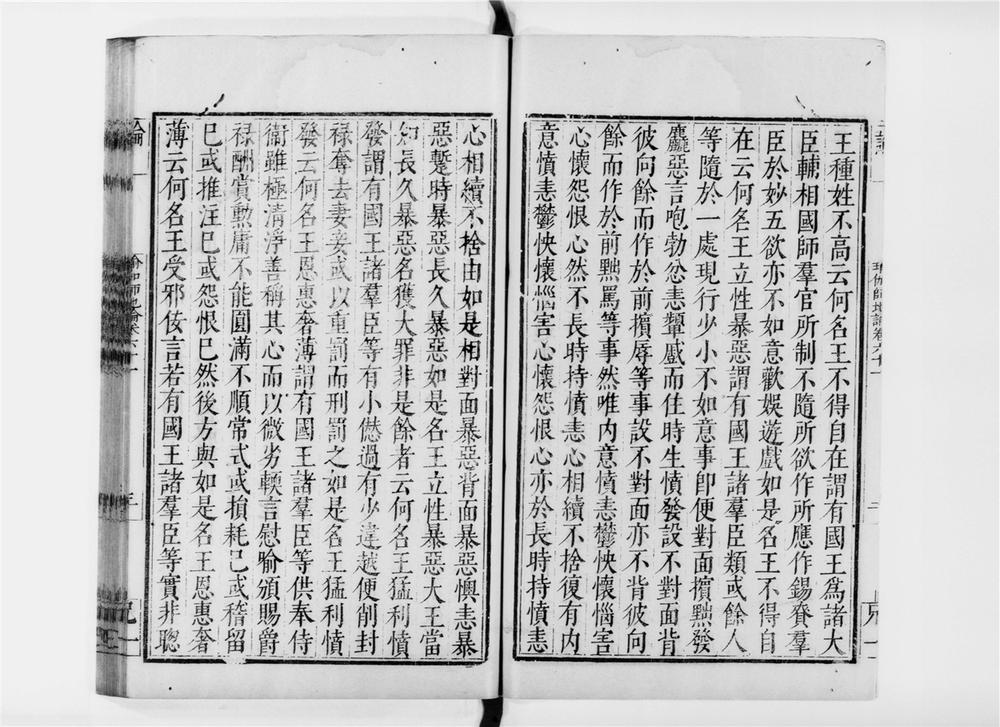 王種姓不高云何名王不得自在謂有國王爲諸大
臣輔相國師羣官所制不隨所欲作所應作錫賚羣
臣於妙五欲亦不如意歡娛遊戲如是名王不得自
在云何名王立性暴惡謂有國王諸羣臣類或餘人
等隨於一處現行少小不如意事卽便對面擯黜發
麤惡言咆勃忿恚顰蹙而住時生憤發設不對面背
彼向餘而作於前擯辱等事設不對面亦不背彼向
餘而作於前黜罵等事然唯內意憤恚鬱怏懷惱害
心懷怨恨心然不長時持憤恚心相續不捨復有內
意憤恚鬱怏懷惱害心懷怨恨心亦於長時持憤恚
瑜伽師地論卷六十一
二
心相續不捨由如是相對面暴惡背面暴惡懊恚暴
惡蹔時暴惡長久暴惡如是名王立性暴惡大王當
知長久暴惡名獲大罪非是餘者云何名王猛利憤
發謂有國王諸羣臣等有小愆過有少違越便削封
祿奪去妻妾或以重罰而刑罰之如是名王猛利憤
發云何名王恩惠奢薄謂有國王諸羣臣等供奉侍
衞雖極淸淨善稱其心而以微劣輭言慰喻頒賜爵
祿酬賞勲庸不能圓滿不順常式或損耗已或稽留
已或推注已或怨恨已然後方與如是名王恩惠奢
薄云何名王受邪佞言若有國王諸羣臣等實非聰